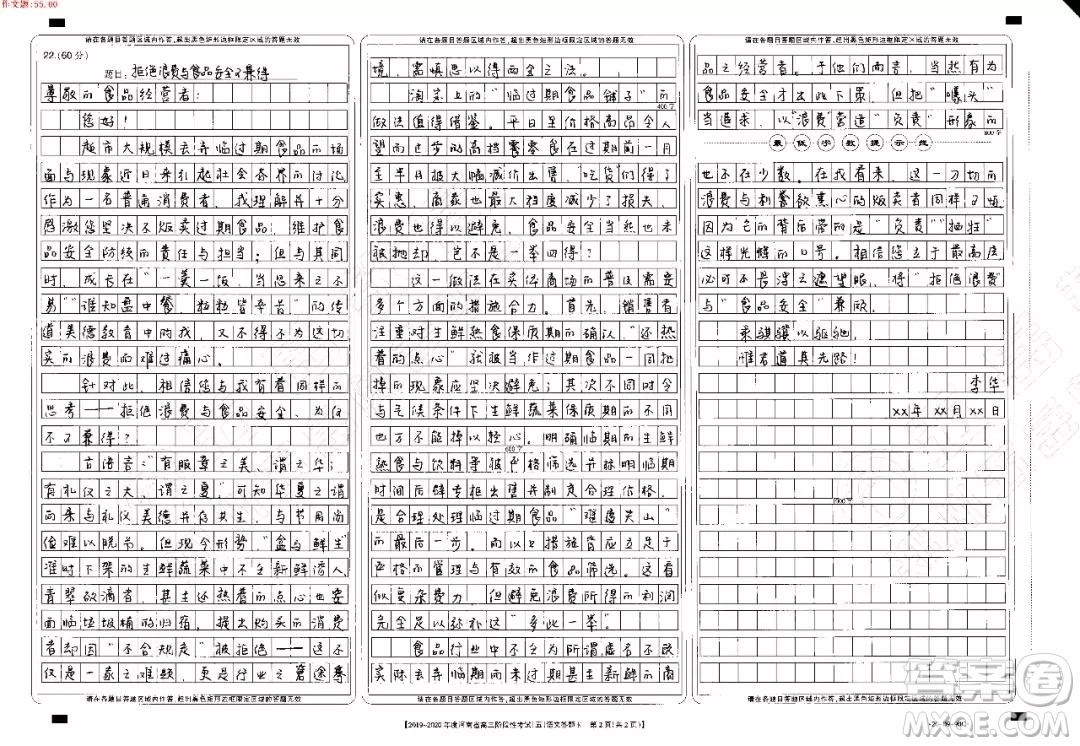 作文题:55.00
请在各题目答题区域内作答,超出黑色矩形边框限定区域的答题无效
22.(60分)
题目:拒绝浪费与食品安全可兼得
尊敬的食品经营者:
您好!
超市大规模丢弃临过期食品的场
面与现象近日来引起社会各界的讨论,
作为一名普通消费者,我理解并十分
感激您坚决不贩卖过期食品、维护食
品安全防线的责任与担当;但与其同
时,成长在“一羹一饭,当思来之不
易”“谁知盘中餐,粒粒皆辛苦”的传
道美德教育中的我,又不得不为这切
实的浪费而难过痛心。
针对此,相信您与我有着同样的
思考——拒绝浪费与食品安全、为何
不可兼得?
古语言:“有服章之美,谓之华;
有礼仪之大,谓之夏。”可知华夏之谓
向来与礼仪美德并存共生,与节用尚
俭难以脱节。但现今形势,“盒马鲜生”
准时下架的生鲜蔬菜中不乏新鲜诱人
青翠欲滴者,甚至还热着的点心也要
面临垃圾桶的归宿。提出购买示消费
者却因“不合规度”被拒绝——这不
仅是一家之难题,更是行业之穷途寡
请在各题目答题区域内作答,超出黑色矩形边框限定区域的答题无效
请在各题目答题区域内作答,超出黑色矩形边框限定区域的答题无效
境,需慎思以得两全之法。
淘宝上的“临过期食品铺子”的
400字
做法值得借鉴。平日里价格高昂令人
望而止步的高档零食在过期前一月
至半月报大幅减价出售,“吃货们”得了
实惠,卖家也最大程度减少了损失,
浪费也得以避免,食品安全当然也未
被抛却,岂不是一举四得?
这一做法在实体商场的普及需要
多个方面的措施合力。首先,销售者
注重对生鲜熟食保质期的确认,“还热
着的点心”就被当作过期食品一同抛
掉的现象应坚决避免;其次不同时令
与气候条件下生鲜蔬菜保质期的不同
也万不能掉以轻心。明确临期的生鲜
600字
熟食与饮料零食被严格筛选并标明临期
时间后辟专柜出售并制定合理价格,
是合理处理临过期食品“难填关山”
的最后一步。而以上措施皆应立足于
严格的管理与有效的食品筛选。这看
似复杂费力,但避免浪费所得的利润
完全足以弥补这“多此一举”。
食品行业中不乏为所谓虚名不顾
实际丢弃临期而未过期食
请在各题目答题区域内作答,超出黑色矩形边框限定区域的答题无效
请在各题目答题区域内作答,超出黑色矩形边框限定区域的答题无效
品之经营者。于他们而言,当然有为
食品安全才出此下策,但把“噱头”
当追求、以“浪费”营造“负责”形象的
800字
最低字数提示线
也不在少数。在我看来,这一刀切的
浪费与利欲熏心的贩卖者同样可恨
因为它的背后带的是“负责”“担当”
这样光鲜的口号。相信您立于最高层
必可不畏浮云遮望眼,将“拒绝浪费”
与“食品安全”兼顾。
乘骐骥以驰骋,
惟君道其先路!
李华
xx年xx月xx日
1000字
请在各题目答题区域内作答,超出黑色矩形边框限定区域的答题无效
【2019-2020年度河南省高三阶段性考试(五)语文答题卡 第2页(共2页)】
·20-09-90C·
答案圈